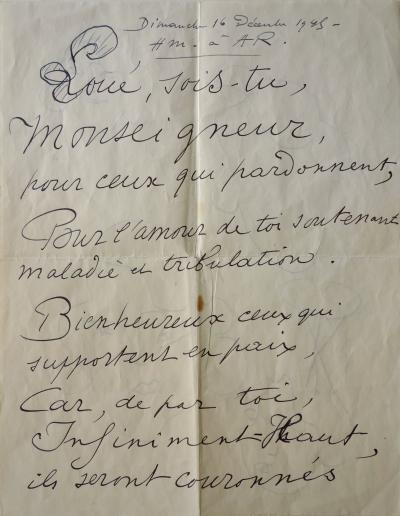 Dimanche 16 Décembre 1945 -
HM. à AR.
Loué, sois-tu,
Monseigneur,
pour ceux qui pardonnent,
Pour l'amour de toi soutenant
maladie et tribulation.
Bienheureux ceux qui
supportent en paix,
Car, de par toi,
Infiniment-Haut,
ils seront couronnés